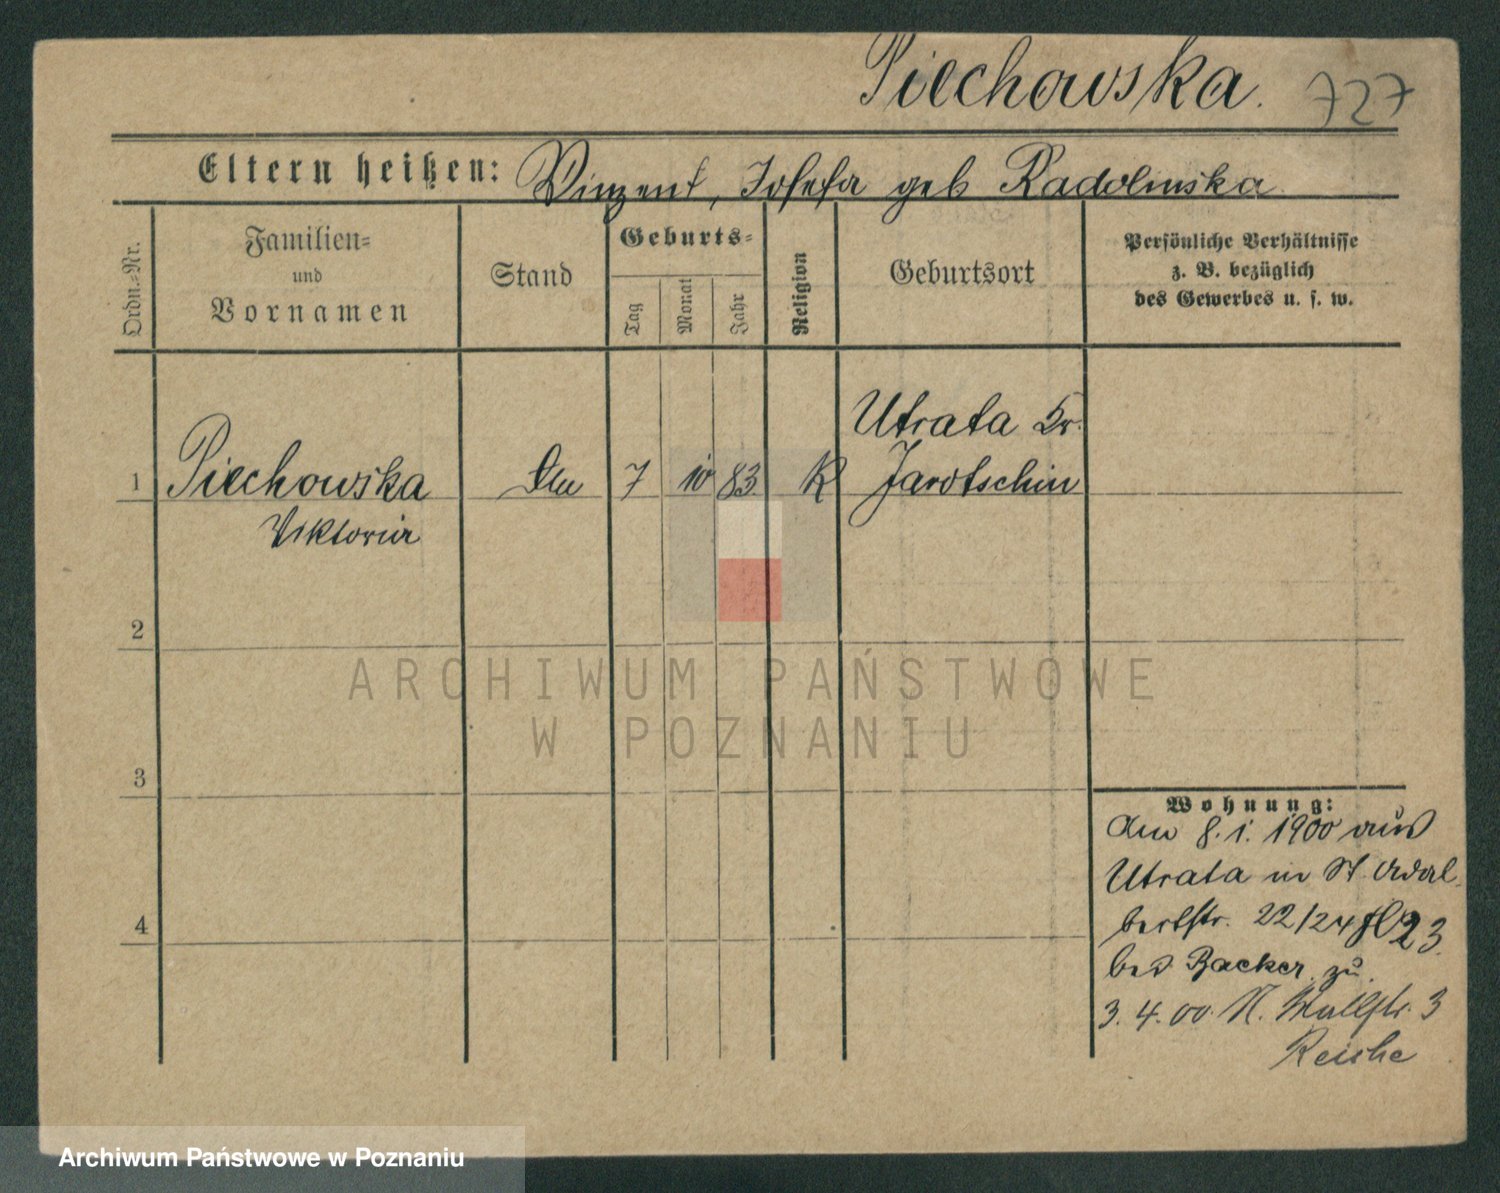 Piechowska. 727
Eltern heißen: Vinzent, Josefa geb Radolinska
Ordn.-Nr.
Familien-
und
Vornamen
Stand
Geburts-
Tag
Monat
Jahr
Religion
Geburtsort
Persönliche Verhältnisse
z. B. bezüglich
des Gewerbes u. s. w.
Utrata Kr.
1 Piechowska 7 10 83 K Jarotschin
Viktoria
2
3
4
Wohnung:
am 8. 1. 1900 aus
Utrata in St. Adal
bertstr. 22/24 23.
bei Backer zu
3. 4. 00. N. Wallstr. 3
ARCHIWUM PAŃSTWOWE
W POZNANIU
Archiwum Państwowe w Poznaniu